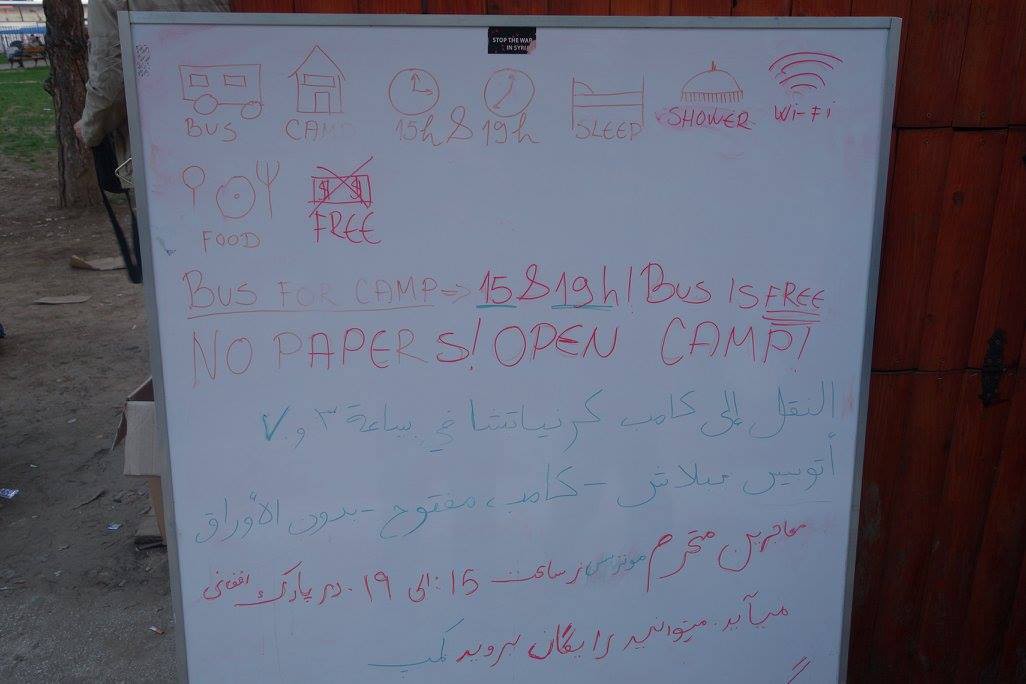 STOP THE WAR
IN SYRIA
BUS CAMP 15h & 19h SLEEP SHOWER Wi-Fi
$ $
FOOD FREE
BUS FOR CAMP => 15 & 19h! BUS IS FREE
NO PAPERS! OPEN CAMP!
النقل إلى كامب كرنياتشا في ساعة ٣ و ٧
أتوبيس ببلاش - كامب مفتوح - بدون الأوراق
مهاجرین محترم موتر بس از ساعت 15 الی ١٩ در پارک افغانی
میآید. میتوانید رایگان بروید کمپ